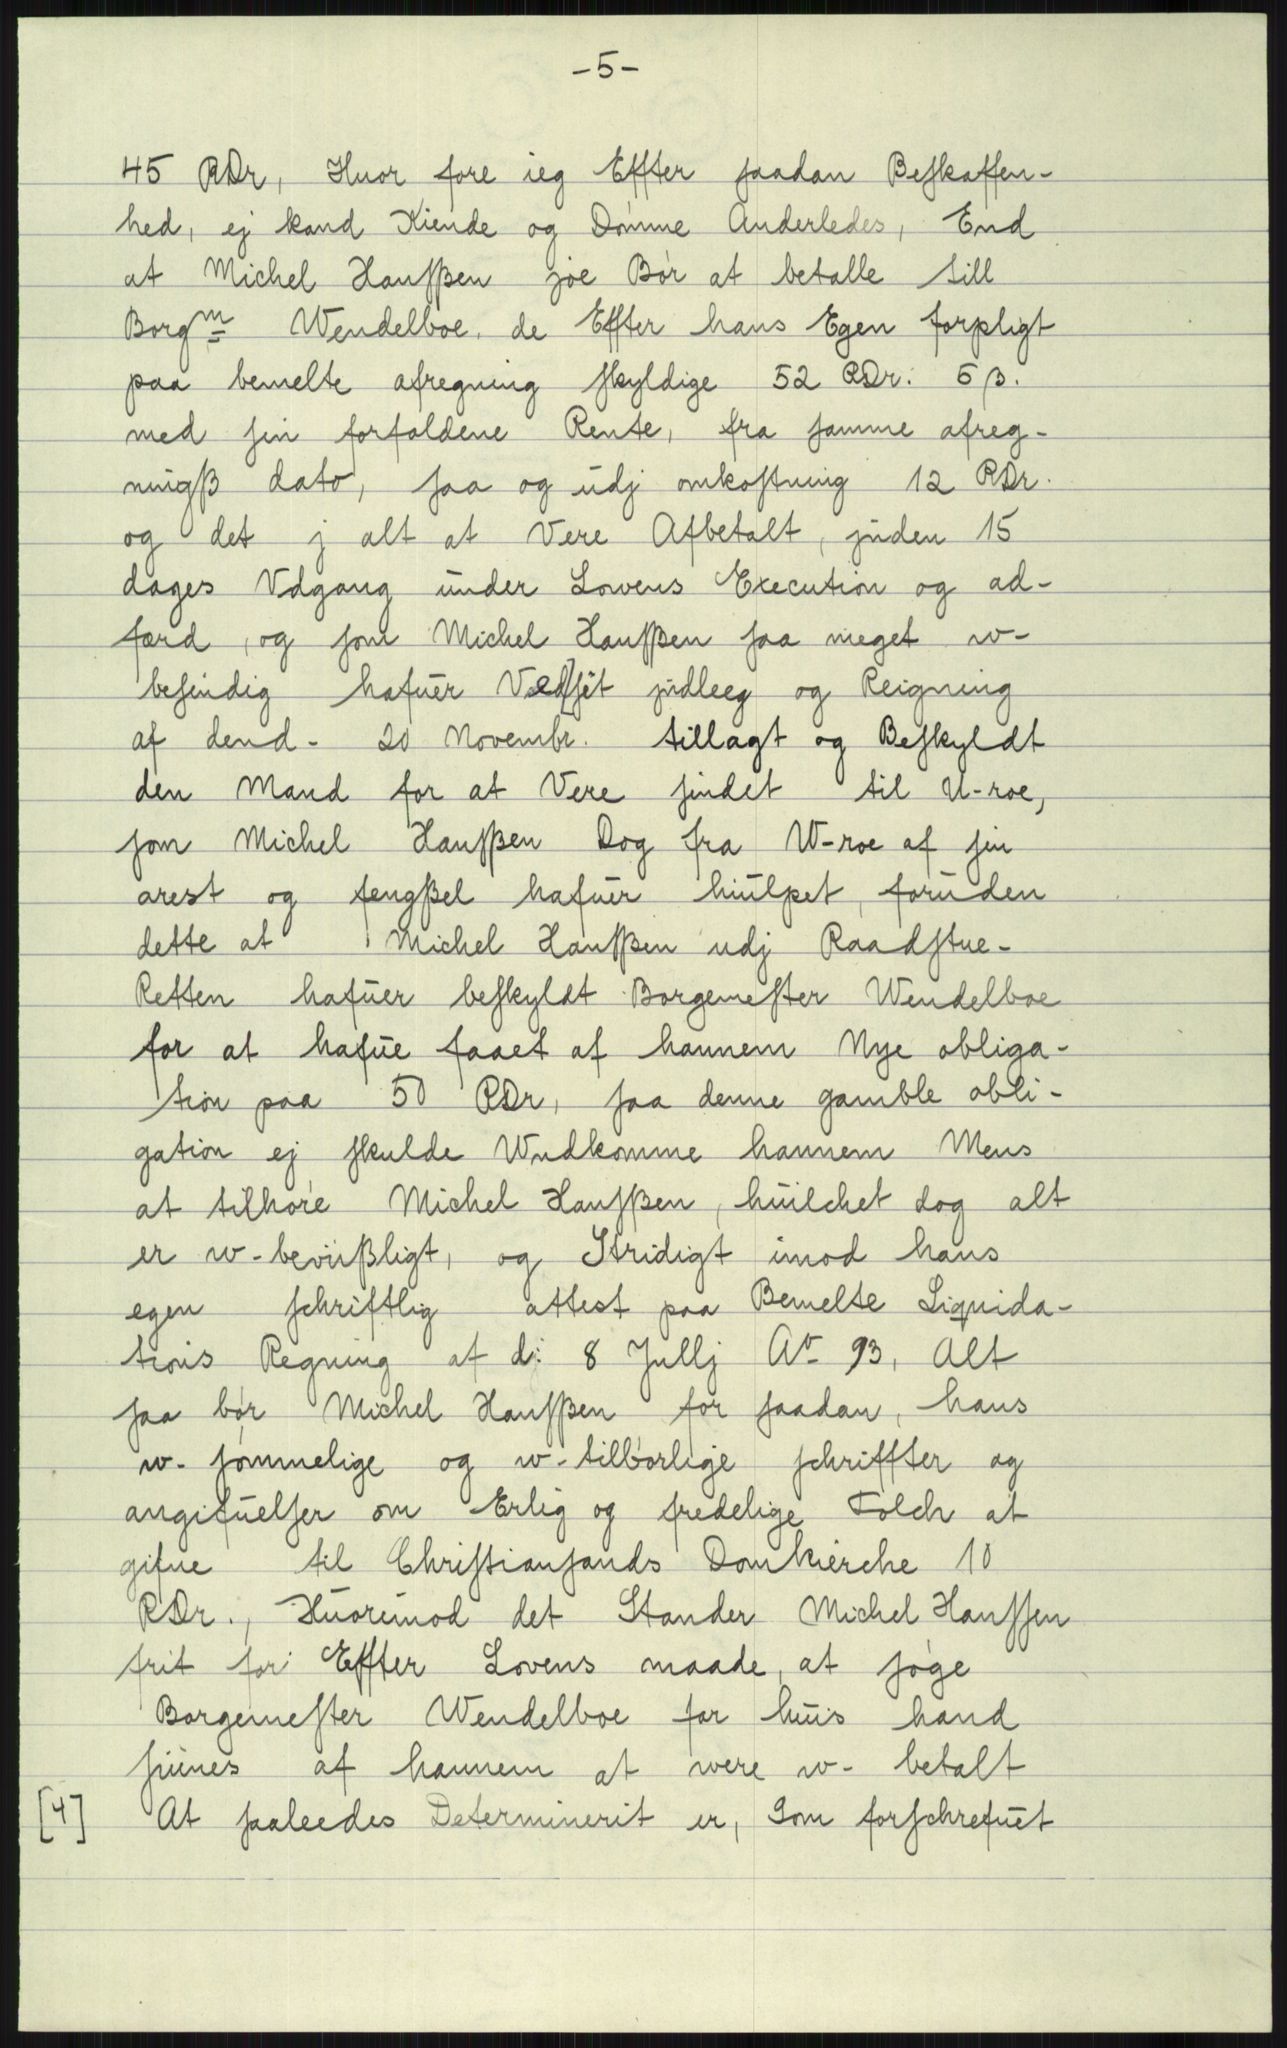 -5-
45 RDr, Huor fore ieg Effter ſaadan Beſkaffen-
hed, ej kand Kiende og Dómme Anderledes, End
at Michel Hanſßen joe Bór at betalle till
Borgm Wendelboe, de Effter hans Egen forpligt
paa bemelte afregning ſkyldige 52 RDr: 5 β.
med ſin forfaldene Rente, fra ſamme afreg-
ningß dato, ſaa og udj omkoſtning 12 RDr.
og det j alt at Vere Afbetalt, jnden 15
dages Vdgang under Lowens Execution og ad-
færd, og ſom Michel Hanſßen ſaa meget w-
beſindig hafuer Ved ſit jndleeg og Reigning
af dend- 20 Novembr. tillagt og Beſkyldt
den Mand for at Vere ſindet til U-roe,
ſom Michel Hanſßen Dog fra W-roe af ſin
arest og fengßel hafuer hiulpet, foruden
dette at Michel Hanſßen udj Raadſtue-
Retten hafuer beſkyldt Borgemeſter Wendelboe
for at hafue faaet af hannem Nye obliga-
tion paa 50 RDr, ſaa denne gamble obli-
gation ej ſkulde Wndkomme hannem Mens
at tilhóre Michel Hanſßen, huilchet dog alt
er w-beviißligt, og Stridigt imod hans
egen ſchriftlig attest paa Bemelte Liquida-
tions Regning af d: 8 Jullj Ao 93, Alt
ſaa bór Michel Hanſßen for ſaadan, hans
w- ſómmelige og w-tilbórlige ſchriffter og
angifuelſer om Erlig og fredelige Folch at
gifue til Chriſtianſands Domkierche 10
RDr., Huorimod det Stander Michel Hanſſen
frit for Effter Lovens maade, at ſóge
Borgemeſter Wendelboe for huis hand
ſiines af hannem at were w- betalt
[4] At ſaaleedes Determinerit er, Som forſchrefuet